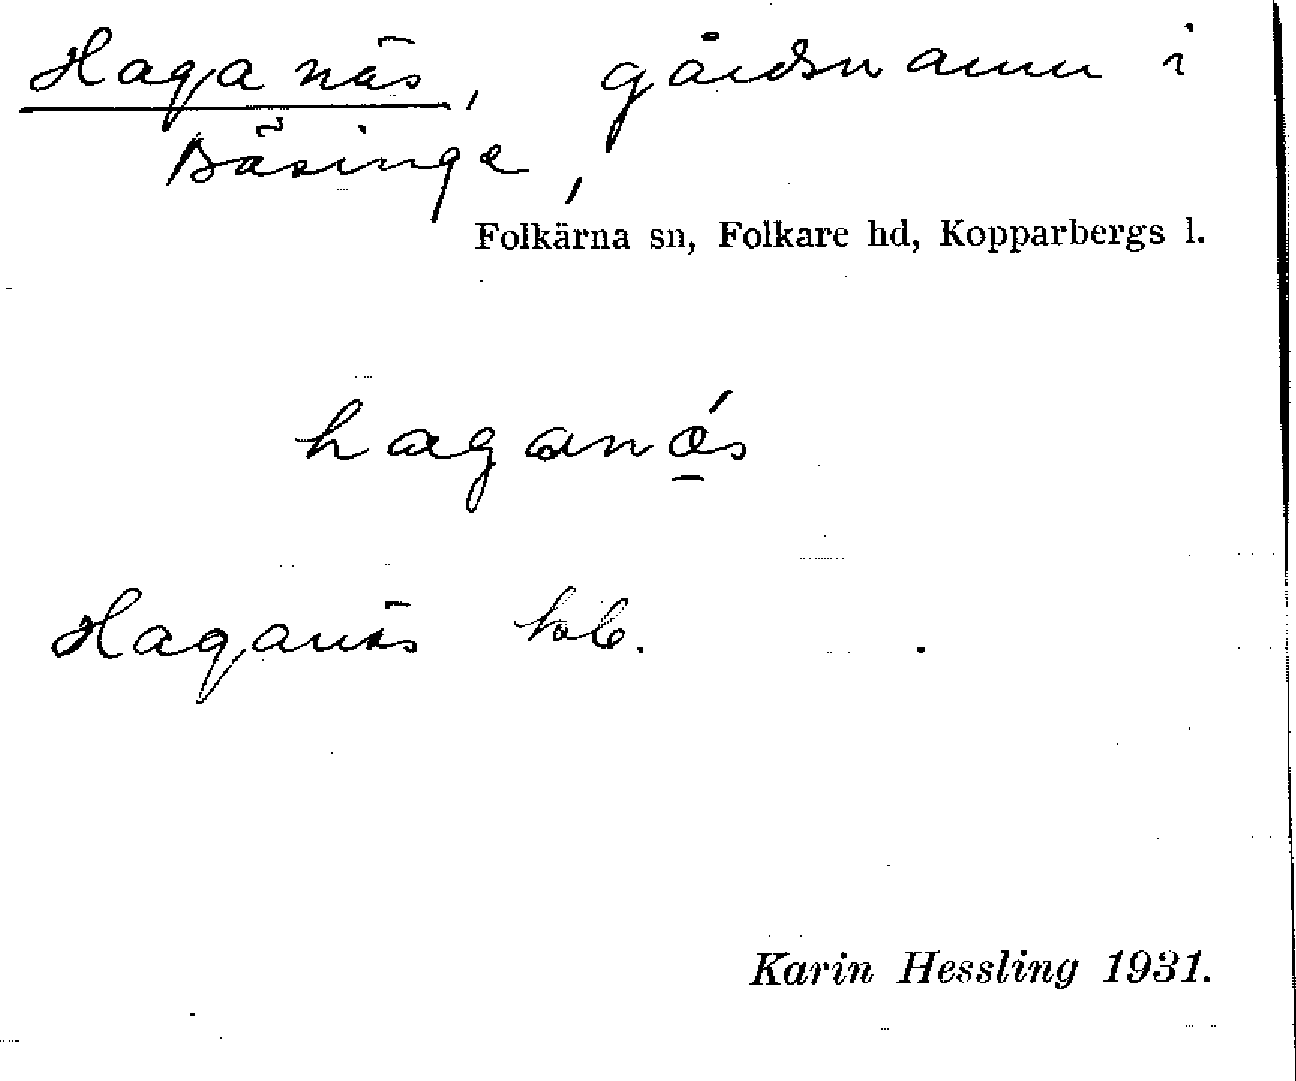 Haganäs, gårdsnamn i
Bäsinge,
Folkärna sn, Folkare hd, Kopparbergs l.
haganǽs
Haganäs
Karin Hessling 1931.